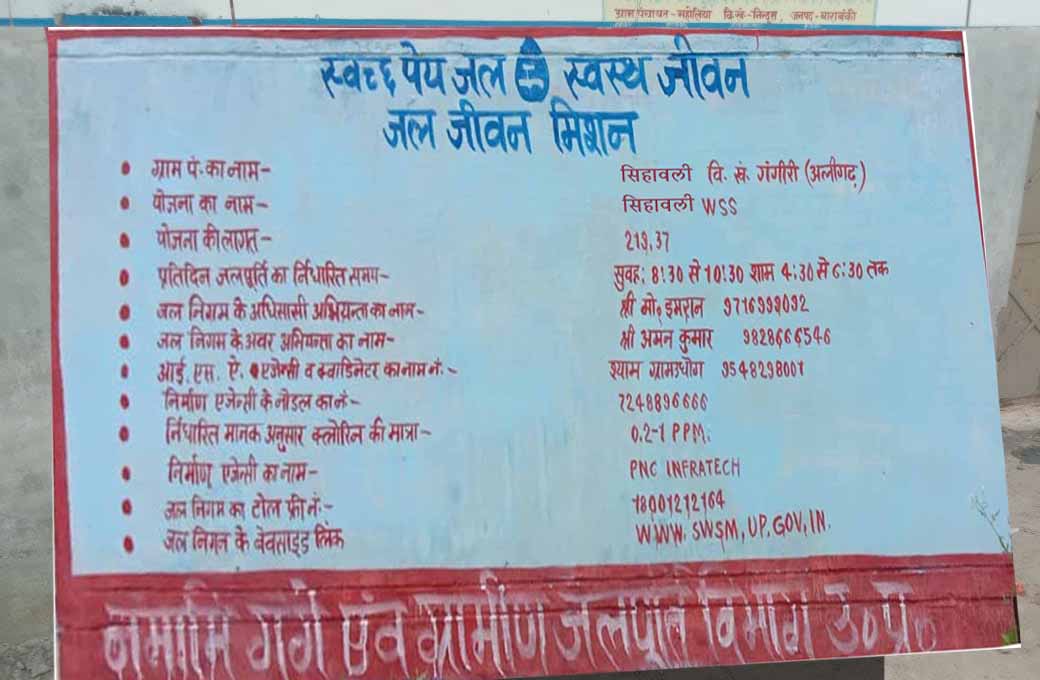 ग्राम पंचायत-महोलिया वि.खं.-निन्दूरा, जनपद-बाराबंकी
स्वच्छ पेय जल स्वस्थ जीवन
जल जीवन मिशन
• ग्राम पं. का नाम- सिहावली वि. खं. गंगीरी (अलीगढ़)
• योजना का नाम- सिहावली WSS
• योजना की लागत- 219.37
• प्रतिदिन जलपूर्ति का र्निधारित समय- सुवह: 8:30 से 10:30 शाम 4:30 से 6:30 तक
• जल निगम के अधिसासी अभियन्ता का नाम- श्री मो० इमरान 9716999092
• जल निगम के अवर अभियन्ता का नाम- श्री अमन कुमार 9828666546
• आई. एस. ऐ. एजेन्सी व क्वाडिनेटर का नाम नं.- श्याम ग्रामउधोग 9548298001
• निर्माण एजेन्सी के नोडल का नं- 7248896666
• र्निधारित मानक अनुसार क्लोरिन की मात्रा- 0.2-1 PPM.
• निर्माण एजेन्सी का नाम- PNC INFRATECH
• जल निगम का टोल फ्री नं.- 18001212164
• जल निगम के वेवसाइड लिंक WWW. SWSM, UP. GOV, IN.
नमामि गंगे एंव ग्रामीण जलपूर्ति विभाग उ० प्र०